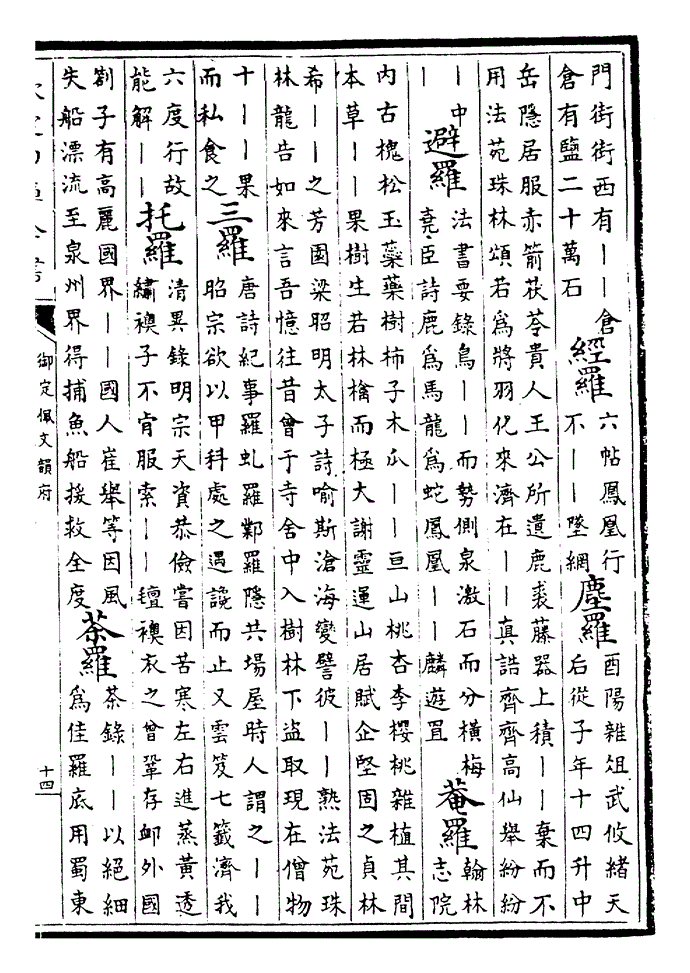 門街街西有丨丨倉
倉有鹽二十萬石
經羅
六帖鳳凰行
不丨丨墜網
塵羅
酉陽雜俎武攸緒天
后從子年十四升中
岳隱居服赤箭茯苓貴人王公所遺鹿裘藤器上積丨丨棄而不
用法苑珠林頌若爲將羽化來濟在丨丨真誥齊齊高仙舉紛紛
丨中
丨
避羅
法書要錄鳥丨丨而勢側泉激石而分橫梅
堯臣詩鹿爲馬龍爲蛇鳳凰丨丨麟遊罝
菴羅
翰林
志院
內古槐松玉蘂藥樹柿子木瓜丨丨亘山桃杏李櫻桃雜植其間
本草丨丨果樹生若林檎而極大謝靈運山居賦企堅固之貞林
希丨丨之芳園梁昭明太子詩喻斯滄海變譬彼丨丨熟法苑珠
林龍吉如來言吾憶往昔曾于寺舍中入樹林下盜取現在僧物
十丨丨果
而私食之
三羅
唐詩紀事羅虬羅鄴羅隱共場屋時人謂之丨丨
昭宗欲以甲科處之遇讒而止又雲笈七籤濟我
六度行故
能解丨丨
托羅
清異錄明宗天資恭儉嘗因苦寒左右進蒸黃透
繡襖子不肯服索丨丨氊襖衣之曾鞏存卹外國
劄子有高麗國界丨丨國人崔舉等因風
失船漂流至泉州界得捕魚船援救全度
茶羅
茶錄丨丨以絕細
爲佳羅底用蜀東
御定佩文韻府
十四